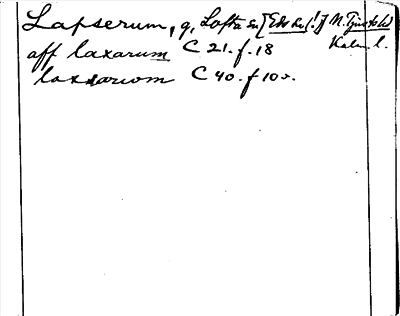 Lapserum, g, Lofta sn [ ! ] N. Tjust hd
Kalm. l.
aff laxarum C 21. f. 18
laxarum C 40. f 10 v.